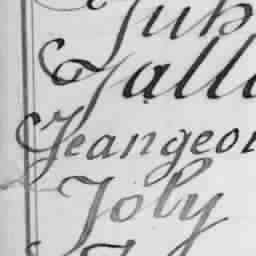 Jub
Jall
Jeangeor
Joly